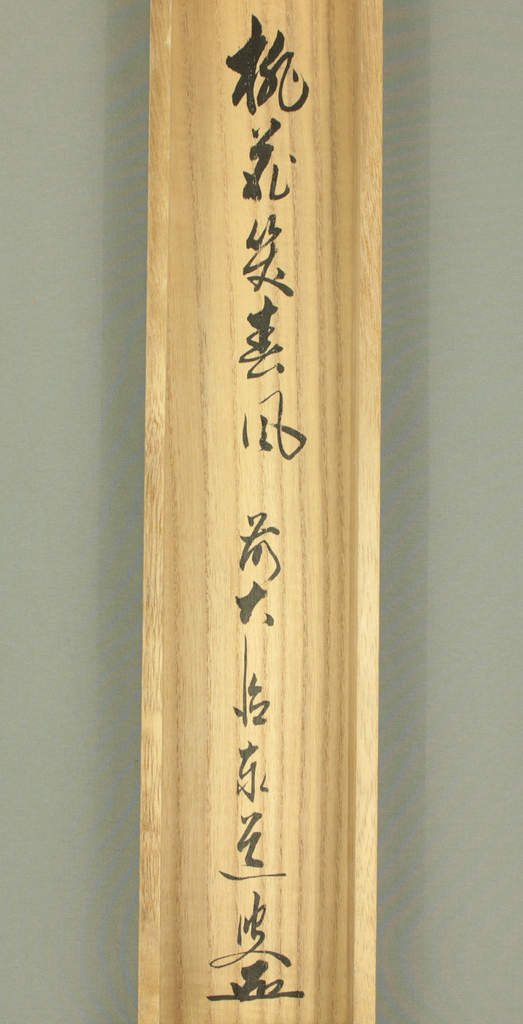 桃花笑春風 前大徳泰道叟